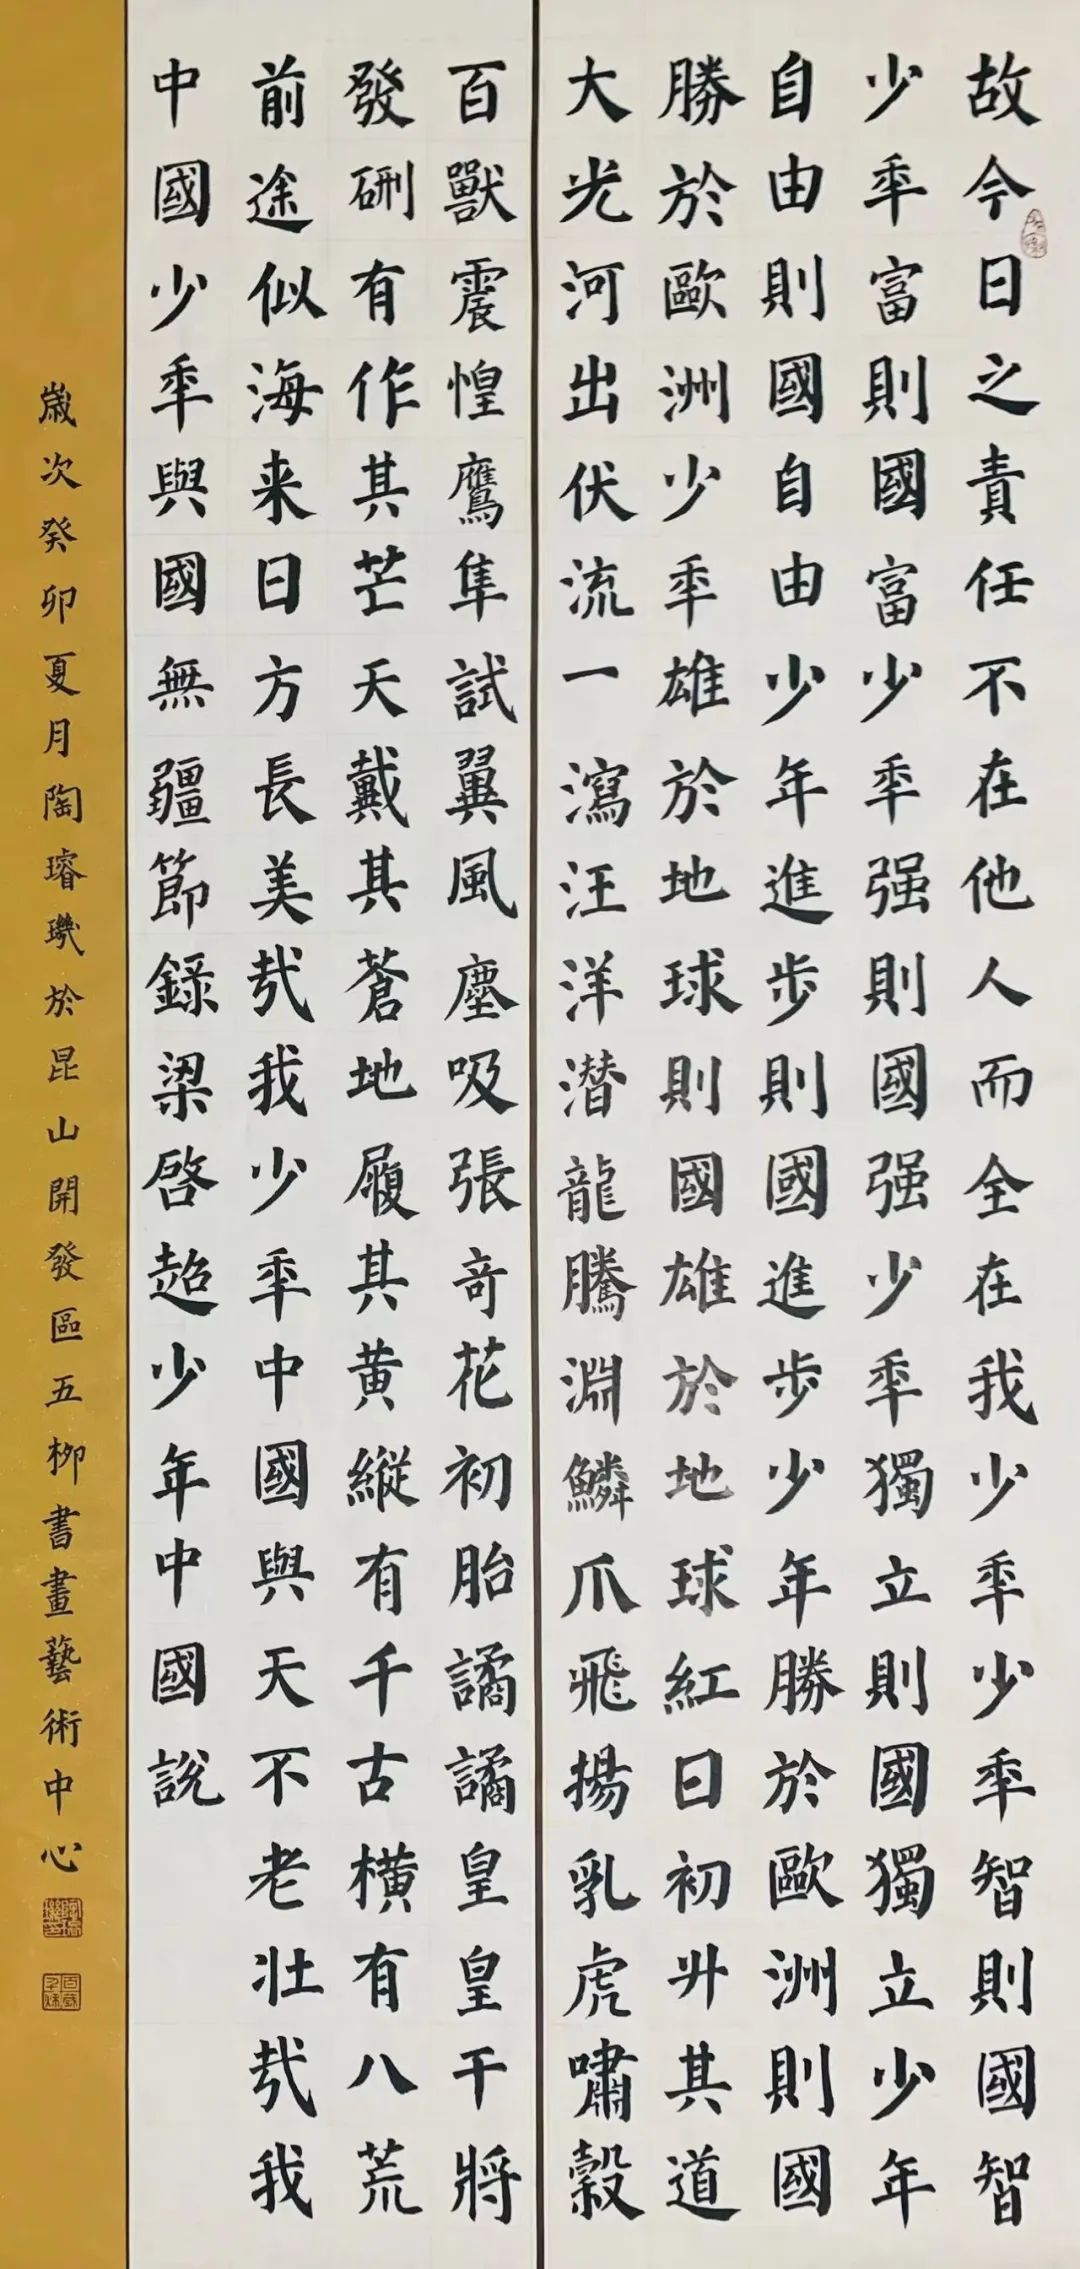 故今日之責任不在他人而全在我少年少年智則國智
少年富則國富少年强則國强少年獨立則國獨立少年
自由則國自由少年進步則國進步少年勝於歐洲則國
勝於歐洲少年雄於地球則國雄於地球紅日初升其道
大光河出伏流一瀉汪洋潜龍騰淵鱗爪飛揚乳虎嘯穀
百獸震惶鷹隼試翼風塵吸張奇花初胎譎譎皇皇干將
發硎有作其芒天戴其蒼地履其黄縱有千古横有八荒
前途似海来日方長美哉我少年中國與天不老壮哉我
中國少年與國無疆節錄梁啓超少年中國説
歲次癸卯夏月陶璿璣於昆山開發區五柳書畫藝術中心